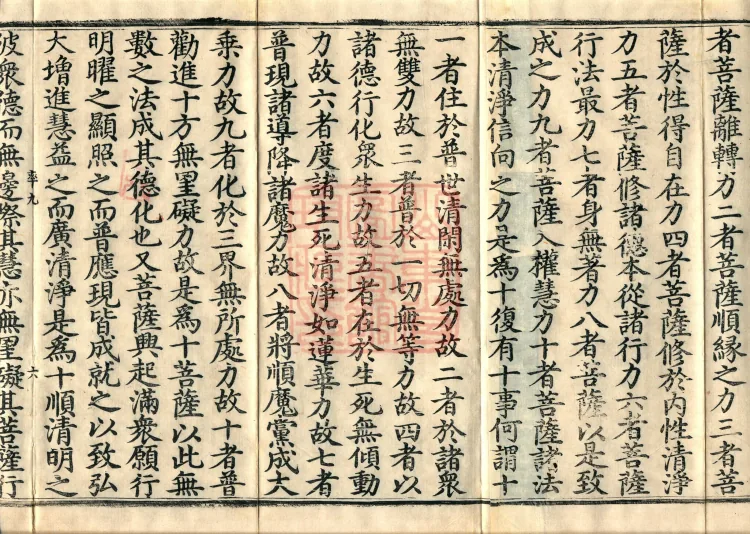 者菩薩離轉力二者菩薩順緣之力三者菩
薩於性得自在力四者菩薩修於內性清淨
力五者菩薩修諸德本從諸行力六者菩薩
行法最力七者身無著力八者菩薩以是致
成之力九者菩薩入權慧力十者菩薩諸法
本清淨信向之力是為十復有十事何謂十
一者住於普世清閑無處力故二者於諸衆
無雙力故三者普於一切無等力故四者以
諸德行化衆生力故五者在於生死無傾動
力故六者度諸生死清淨如蓮華力故七者
普現諸導降諸魔力故八者將順魔黨成大
乘力故九者化於三界無所處力故十者普
勸進十方無罣礙力故是為十菩薩以此無
數之法成其德化也又菩薩興起滿衆願行
明曜之顯照之而普應現皆成就之以致弘
大增進慧益之而廣清淨是為十順清明之
率九 六
波衆德而無邊際其慧亦無罣礙其菩薩行